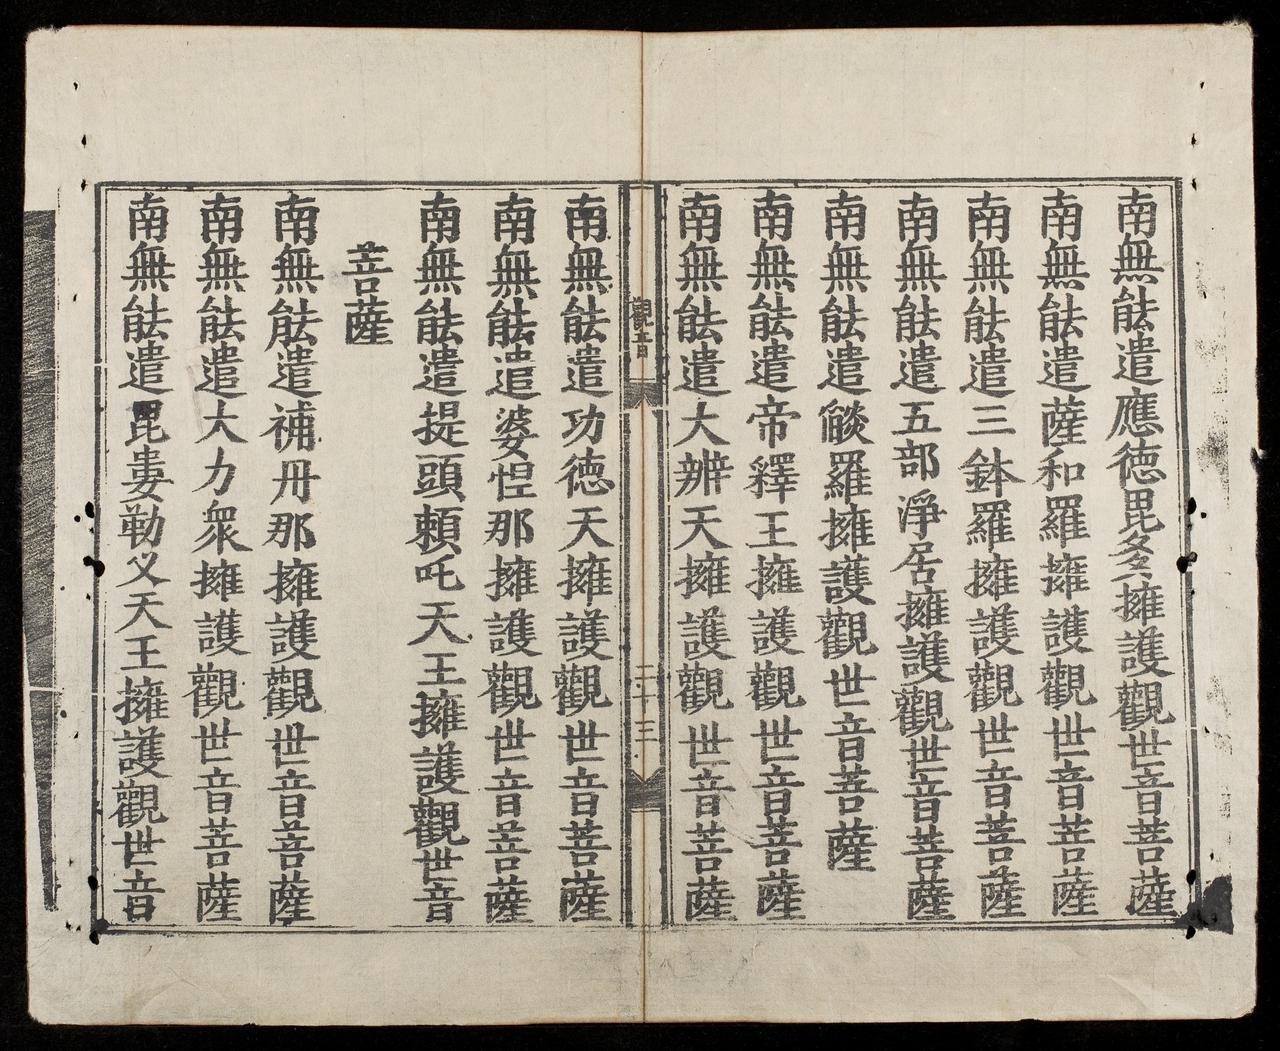 南無能遣應德毘多擁護觀世音菩薩
南無能遣薩和羅擁護觀世音菩薩
南無能遣三鉢羅擁護觀世音菩薩
南無能遣五部淨居擁護觀世音菩薩
南無能遣燄羅擁護觀世音菩薩
南無能遣帝釋王擁護觀世音菩薩
南無能遣大辨天擁護觀世音菩薩
二十三
南無能遣功德天擁護觀世音菩薩
南無能遣婆怛那擁護觀世音菩薩
南無能遣提頭頼吒天王擁護觀世音
菩薩
南無能遣補丹那擁護觀世音菩薩
南無能遣大力衆擁護觀世音菩薩
南無能遣毘婁勒叉天王擁護觀世音